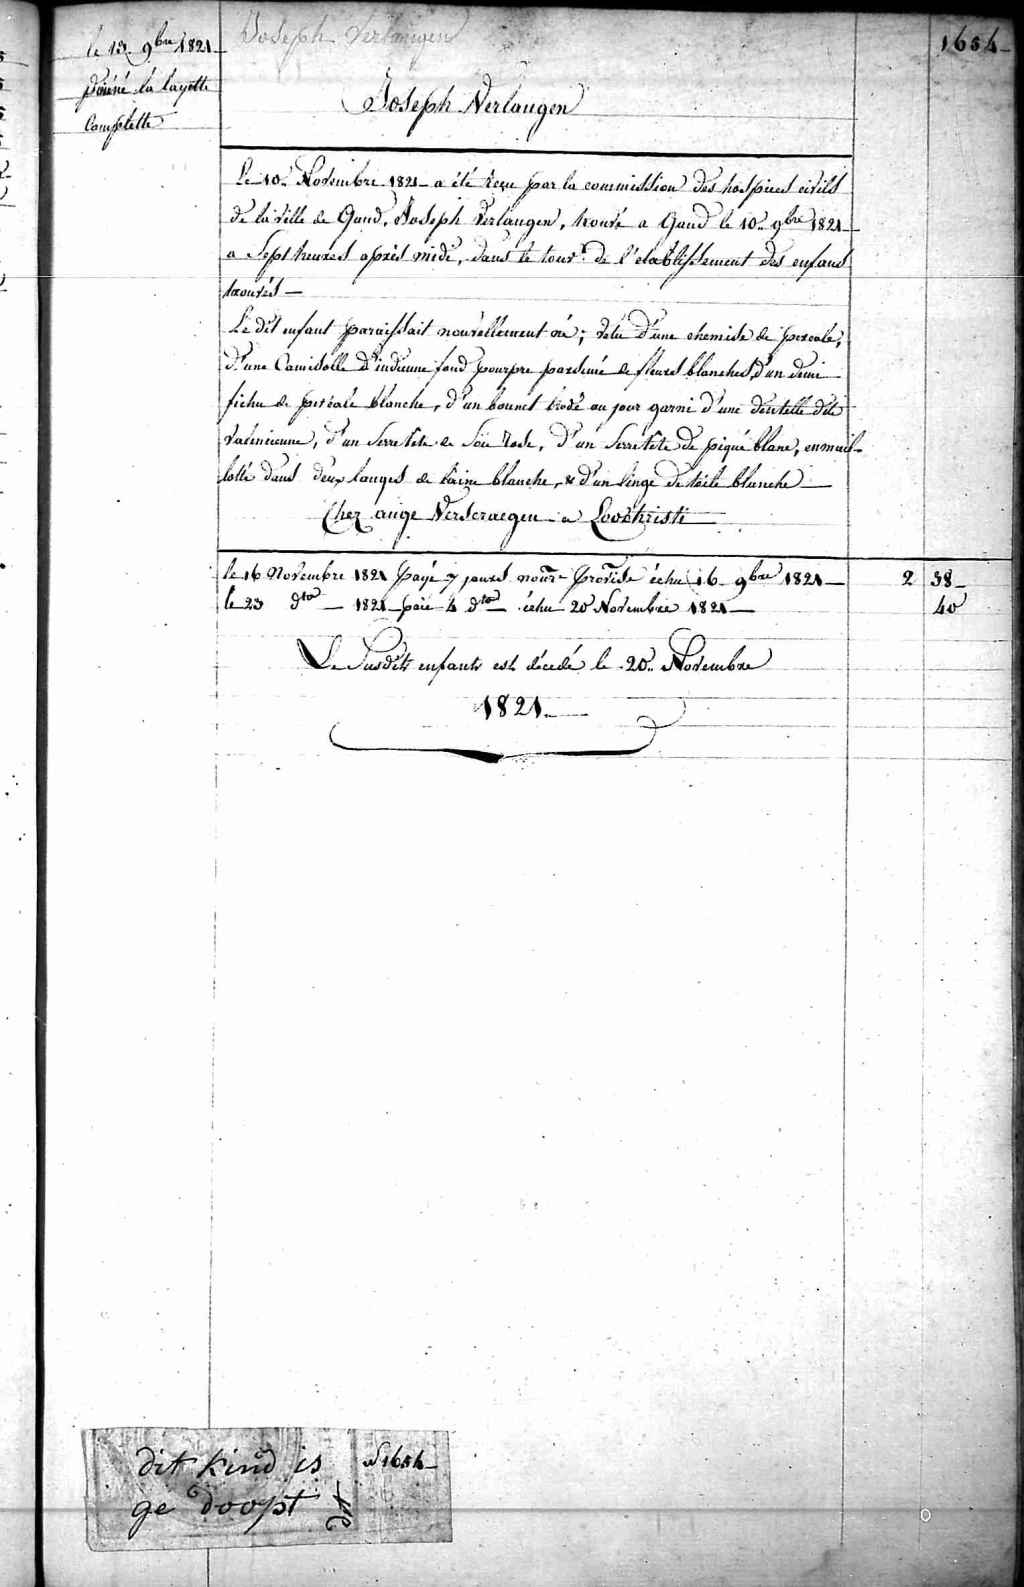 le 13 9bre 1821
donné la layette
Complette
Joseph Verlangen
1654
Joseph Verlangen
Le 10 Novembre 1821 a été reçu par la commission des hospices civils
de la ville de Gand, Joseph Verlangen, trouvé a Gand le 10 9bre 1821
a Sept heures après midi, dans le tour de l'etablissement des enfans
trouvés
Le dit enfant paraissait nouvellement né; vetu d'une chemise de percale,
d'une Camisolle d'indienne fond pourpre parsemé de fleurs blanches, d'un demi
fichu de percale blanche, d'un bonnet brodé au jour garni d'une dentelle dite
valencienne, d'un Serretête de Soie rose, d'un Serretête de piqué blanc, enmail-
lotté dans deux langes de laine blanche, & d'un linge de toile blanche
Chez ange Verscraegen a Loochristi
le 16 Novembre 1821 payé 7 jours nourre provise échu 16 9bre 1821 2 38
le 23 dto 1821 paié 4 dto échu 20 Novembre 1821 40
Le Susdits enfants est décedé le 20 Novembre
1821
dit kind is
ge doopt
N 1654